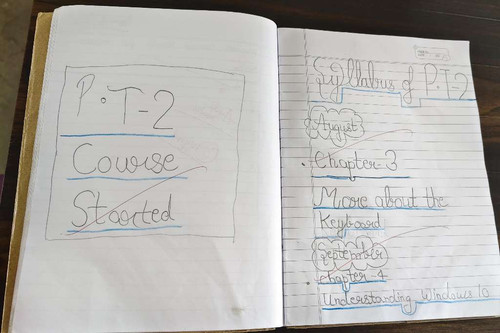 P.T-2
Course
Started
Syllabus of P.T-2
August
Chapter-3
More about the
Keyboard
September
chapter-4
Understanding Windows 10